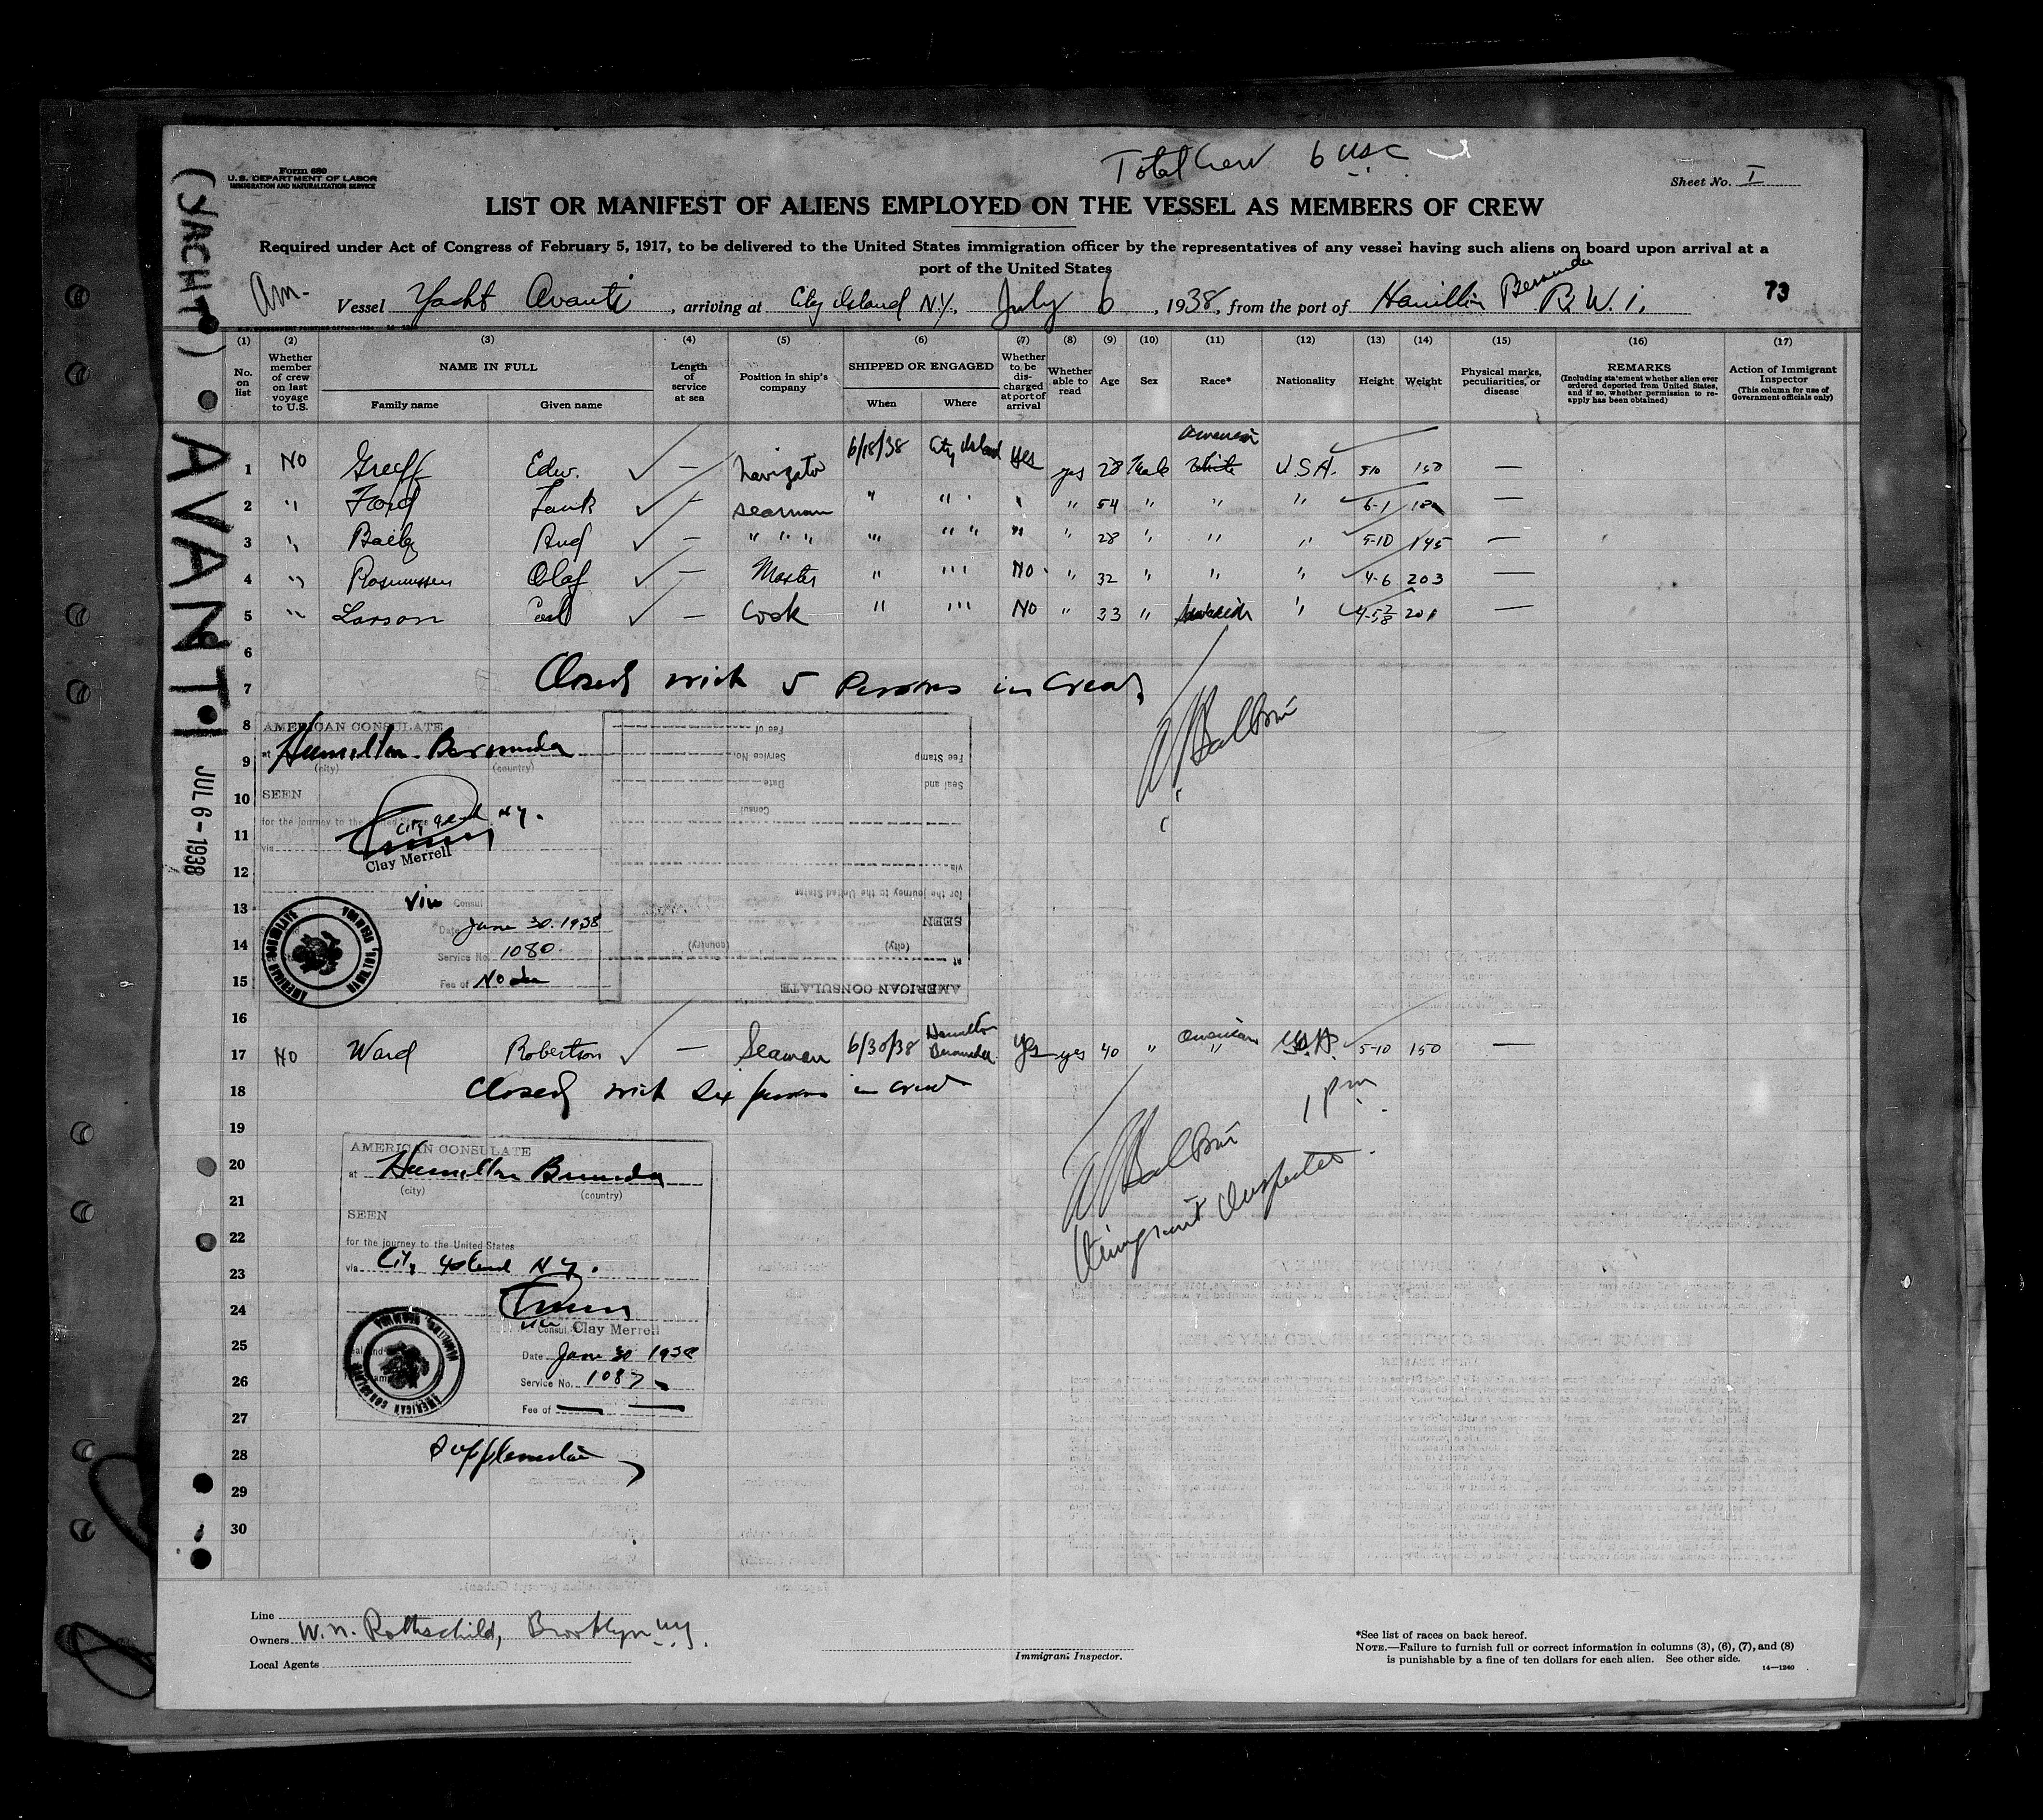 Total Crew 6 USC
Form 680
U.S. DEPARTMENT OF LABOR
IMMIGRATION AND NATURALIZATION SERVICE
Sheet No. I
LIST OR MANIFEST OF ALIENS EMPLOYED ON THE VESSEL AS MEMBERS OF CREW
Required under Act of Congress of February 5, 1917, to be delivered to the United States immigration officer by the representatives of any vessel having such aliens on board upon arrival at a
port of the United States
Am. Vessel Yacht Avanti, arriving at City Island N.Y., July 6, 1938, from the port of Hamilton Bermuda B.W.I.
73
(YACHT) AVANTI JUL 6 - 1938
(1) (2) (3) (4) (5) (6) (7) (8) (9) (10) (11) (12) (13) (14) (15) (16) (17)
No. on list
Whether member of crew on last voyage to U.S.
NAME IN FULL
Family name
Given name
Length of service at sea
Position in ship's company
SHIPPED OR ENGAGED
When
Where
Whether to be discharged at port of arrival
Whether able to read
Age
Sex
Race*
Nationality
Height
Weight
Physical marks, peculiarities, or disease
REMARKS
(Including statement whether alien ever ordered deported from United States, and if so, whether permission to reapply has been obtained)
Action of Immigrant Inspector
(This column for use of Government officials only)
American
1 NO Greeff Edw. ✓ — navigator 6/18/38 City Island yes yes 28 Male White U.S.A. 5-10 150 —
2 " Ford ✓ — seaman " " " " 54 " " " 6-1 —
3 " Baily ✓ — " " " " " " " " 28 " " " 5-10 145 —
4 " Rasmussen Olaf ✓ — Master " " NO " 32 " " " 4-6 203 —
5 " Larson Carl ✓ — Cook " " NO " 33 " " 201 —
6
7 Closed with 5 Persons in Crew
8 AMERICAN CONSULATE
9 at Hamilton Bermuda
(city) (country)
10 SEEN
11 for the journey to the United States
via City Island N.Y.
12 Clay Merrell
13 Vice Consul
Date June 30. 1938
14 Service No. 1080
15 Fee of No fee
AMERICAN CONSULATE
at
(city) (country)
SEEN
for the journey to the United States
via
Consul
Date
Service No.
Fee of
Seal and
Fee Stamp
AMERICAN CONSULATE HAMILTON, BERMUDA
16
17 NO Ward Robertson ✓ — Seaman 6/30/38 Hamilton Bermuda yes yes 40 " American " U.S.A. 5-10 150 —
18 Closed with six persons in crew
1 pm
19
AMERICAN CONSULATE
20 at Hamilton Bermuda
21 (city) (country)
SEEN
22 for the journey to the United States
23 via City Island N.Y.
Immigrant Inspector
24
Vice Consul Clay Merrell
25 Date June 30 1938
26 Service No. 1087
27 Fee of — —
AMERICAN CONSULATE HAMILTON, BERMUDA
28
29
30
Line
Owners W.N. Rothschild, Brooklyn NY.
Local Agents
Immigrant Inspector.
*See list of races on back hereof.
NOTE.—Failure to furnish full or correct information in columns (3), (6), (7), and (8)
is punishable by a fine of ten dollars for each alien. See other side.
14—1240